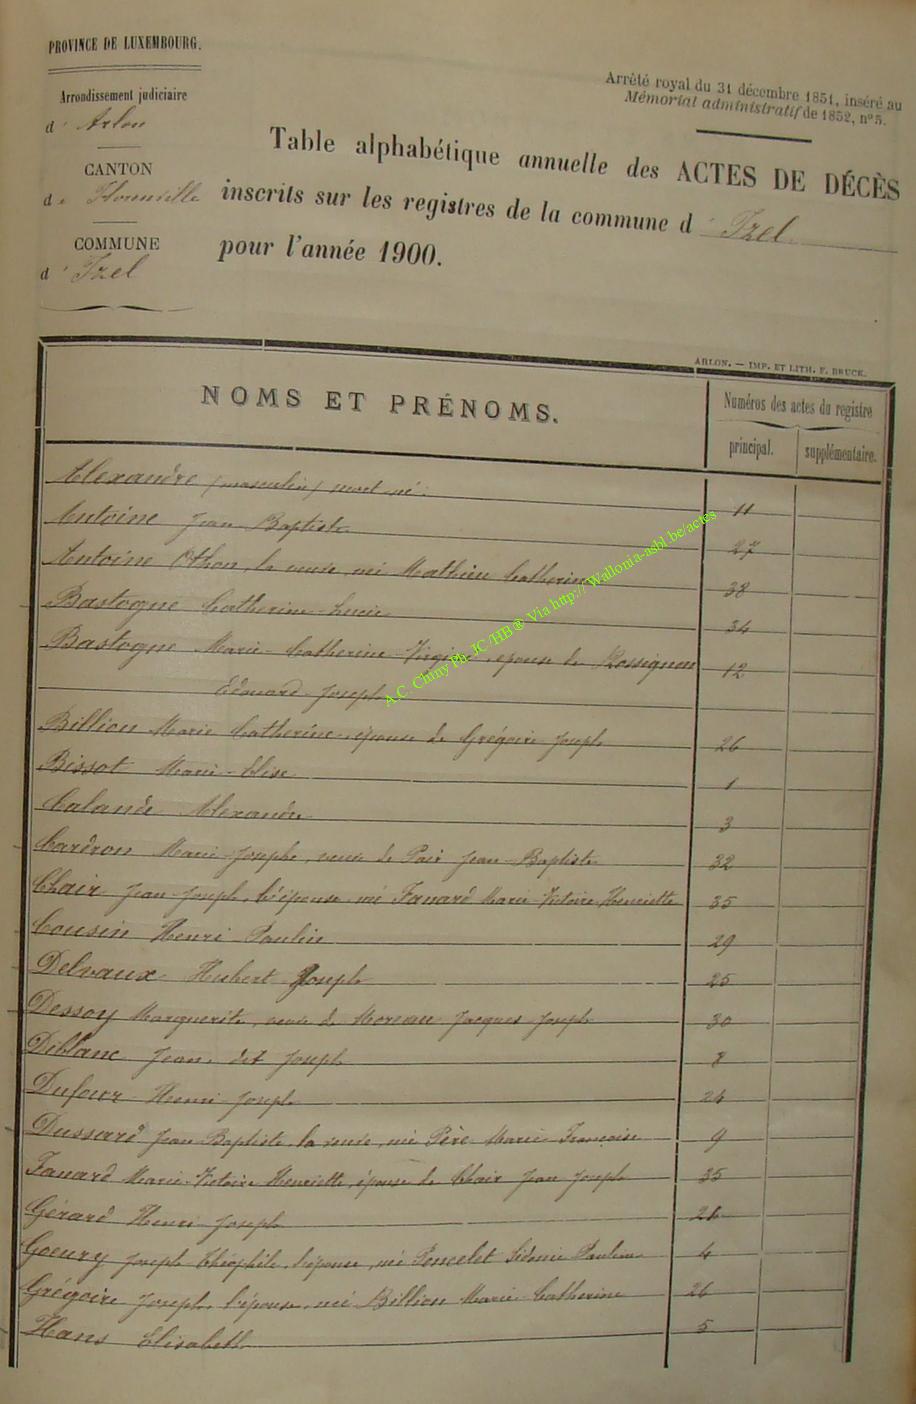 PROVINCE DE LUXEMBOURG.
Arrondissement judiciaire
d' Arlon
CANTON
de Florenville
COMMUNE
d' Izel
Arrêté royal du 31 décembre 1851, inséré au
Mémorial administratif de 1852, nº 5.
Table alphabétique annuelle des ACTES DE DÉCÈS
inscrits sur les registres de la commune d' Izel
pour l'année 1900.
ARLON. — IMP. ET LITH. F. BRUCK.
NOMS ET PRÉNOMS.
Numéros des actes du registre
principal. supplémentaire.
Alexandre (masculin) mort-né. 11
Antoine Jean Baptiste 27
Antoine Othon, la veuve, née Mathieu Catherine 38
Bastogne Catherine-Lucie 34
Bastogne Marie-Catherine-Virginie, épouse de Rossignon 12
Edouard Joseph
Billion Marie Catherine, épouse de Grégoire Joseph 26
Bissot Marie-Elise 1
Calande Alexandre 3
Cardron Marie-Josephe, veuve de Poir Jean-Baptiste 32
Chair Jean-Joseph, l'épouse, née Fanard Marie Victoire Henriette 35
Cousin Henri Paulin 29
Delvaux Hubert Joseph 25
Dessoy Marguerite, veuve de Moreau Jacques Joseph 30
Diblanc Jean, dit Joseph 8
Dufour Henri-Joseph 24
Dussard Jean Baptiste, la veuve, née Père Marie Françoise 9
Fanard Marie-Victoire Henriette, épouse de Chair Jean Joseph 35
Gérard Henri-Joseph
Goeury Joseph Théophile, l'épouse, née Poncelet Sidonie Pauline 4
Grégoire Joseph, l'épouse, née Billion Marie Catherine 26
Hans Elisabeth 5
A.C. Chiny Ph. JC/HB® Via http://Wallonia-asbl.be/actes